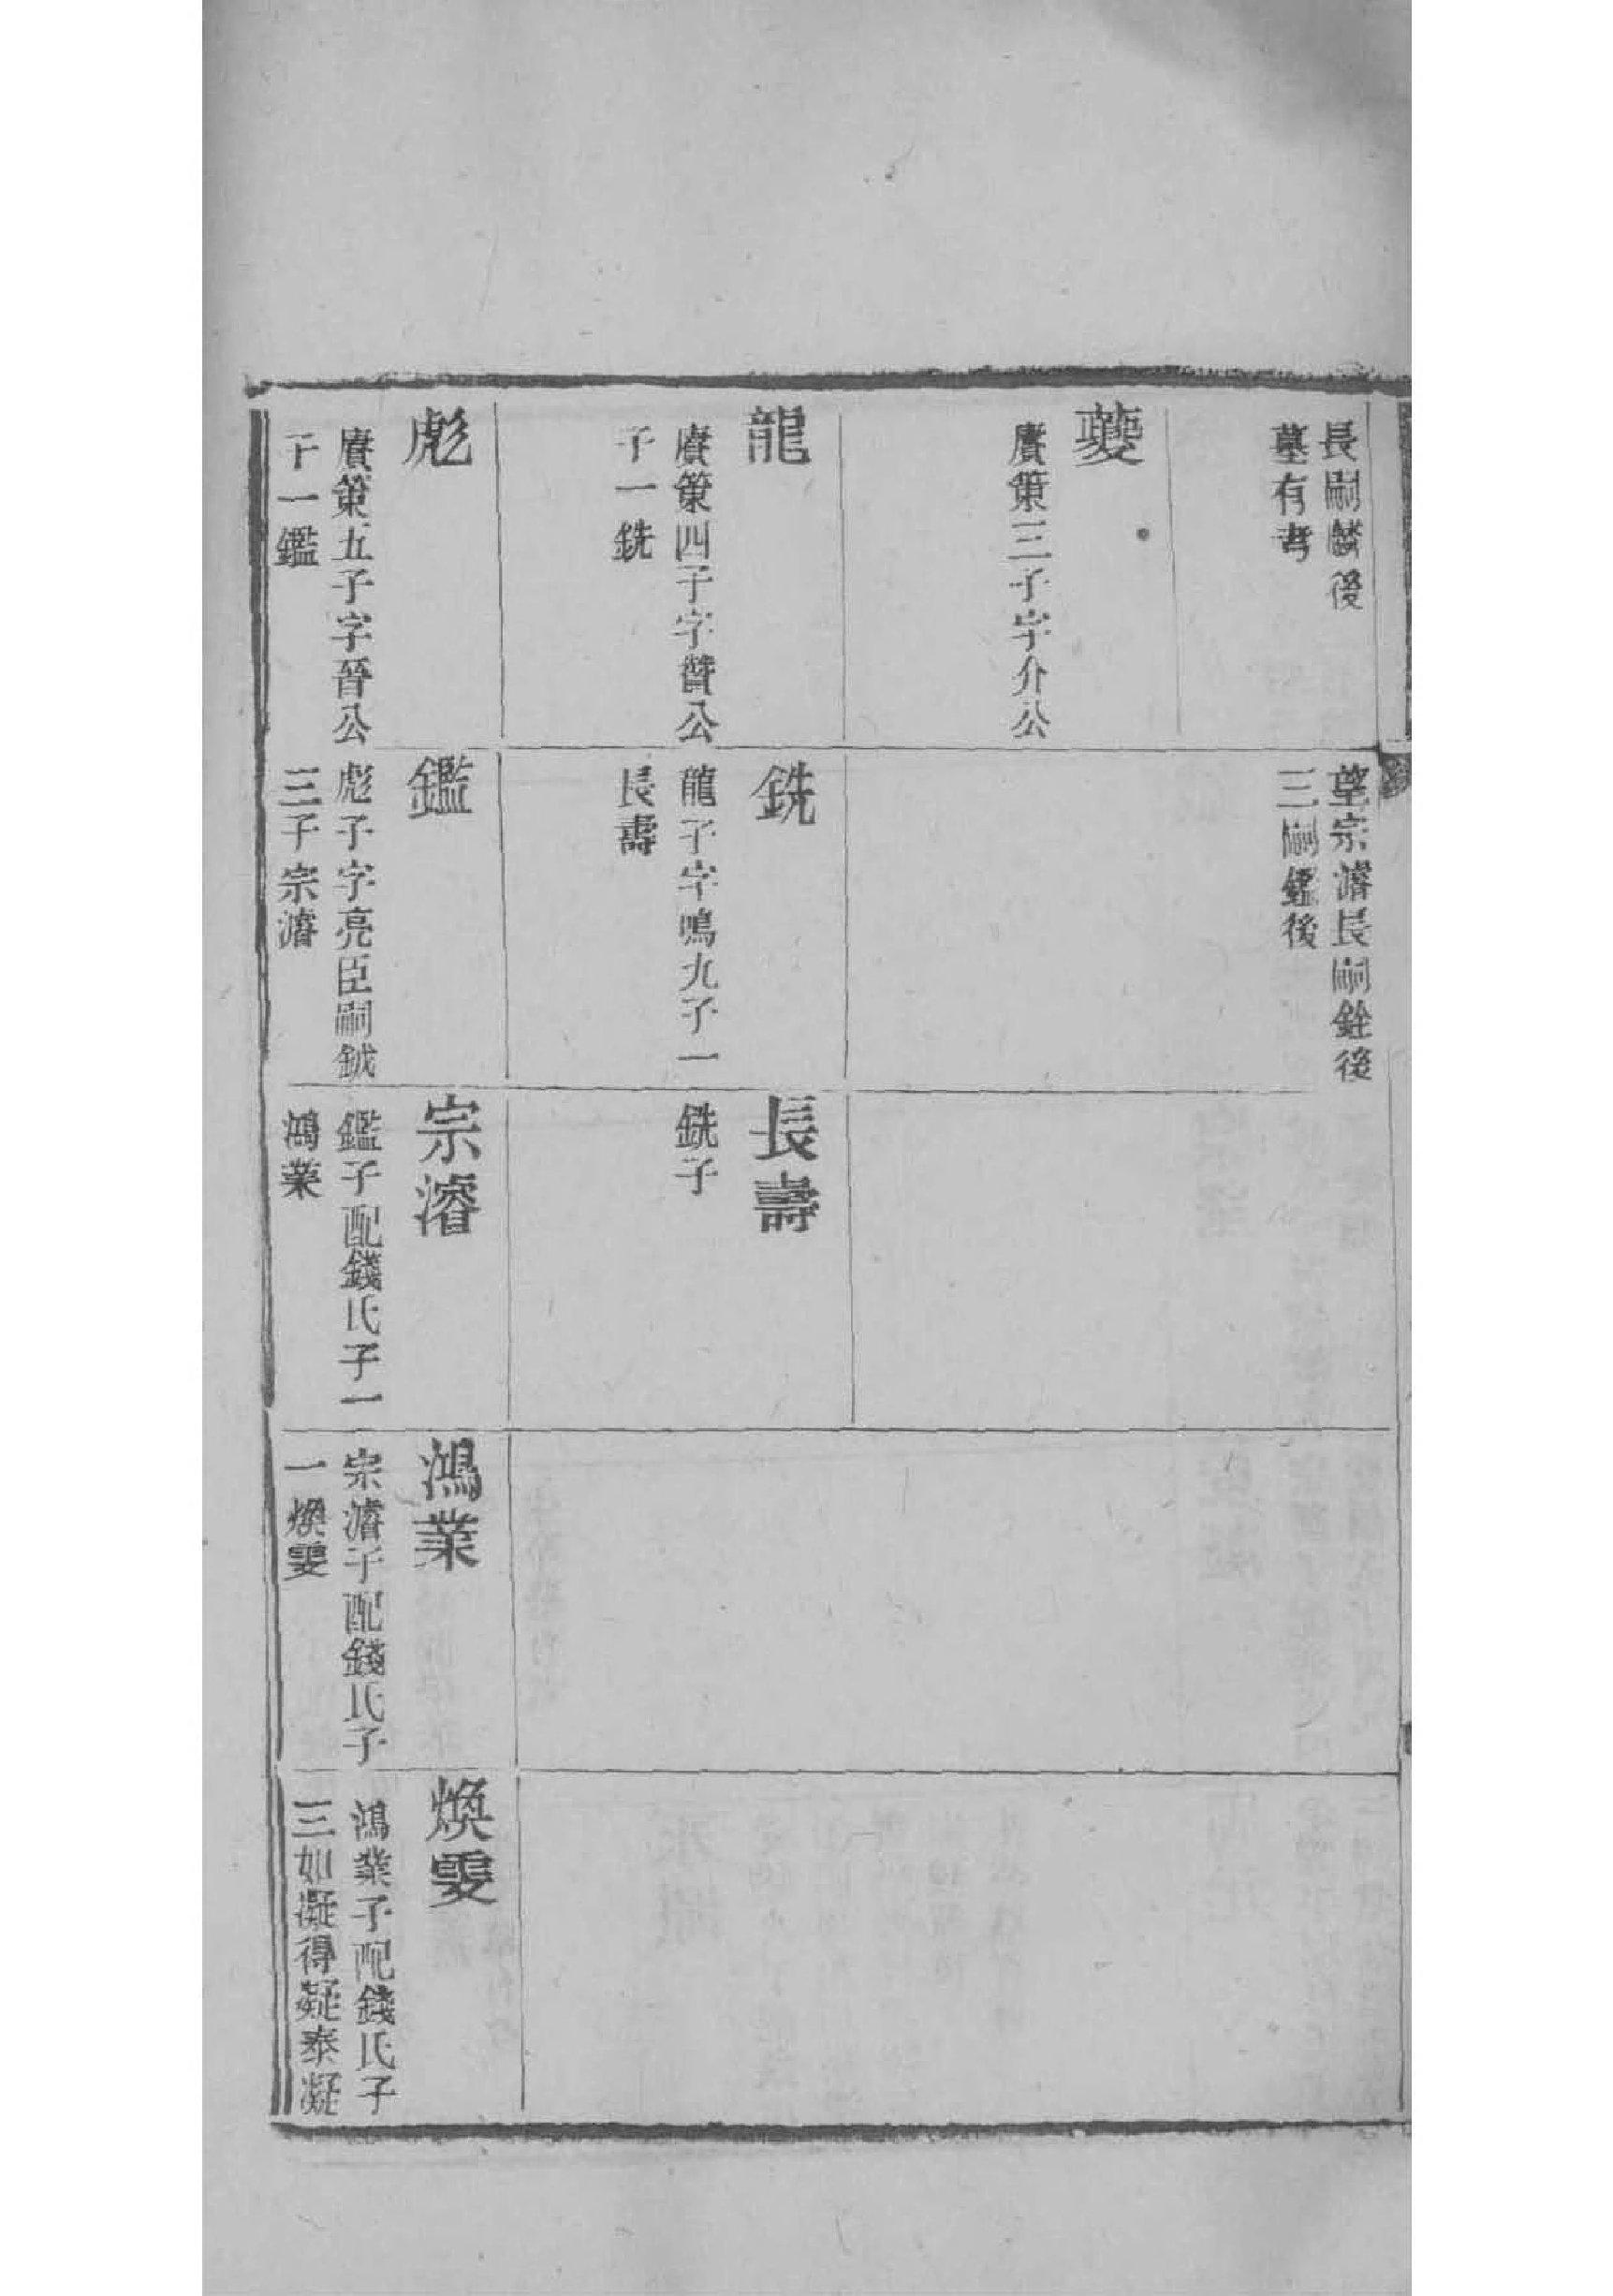 長嗣麟後
墓有考
夔
賡策三子字介公
龍
賡策四子字贊公
子一銑
彪
賡策五子字晉公
子一鑑
望宗濬長嗣銓後
三嗣鑑後
銑
龍子字鳴九子一
長壽
鑑
彪子字亮臣嗣鉞
三子宗濬
長壽
銑子
宗濬
鑑子配錢氏子一
鴻業
鴻業
宗濬子配錢氏子
一煥雯
煥雯
鴻業子配錢氏子
三如凝得凝泰凝